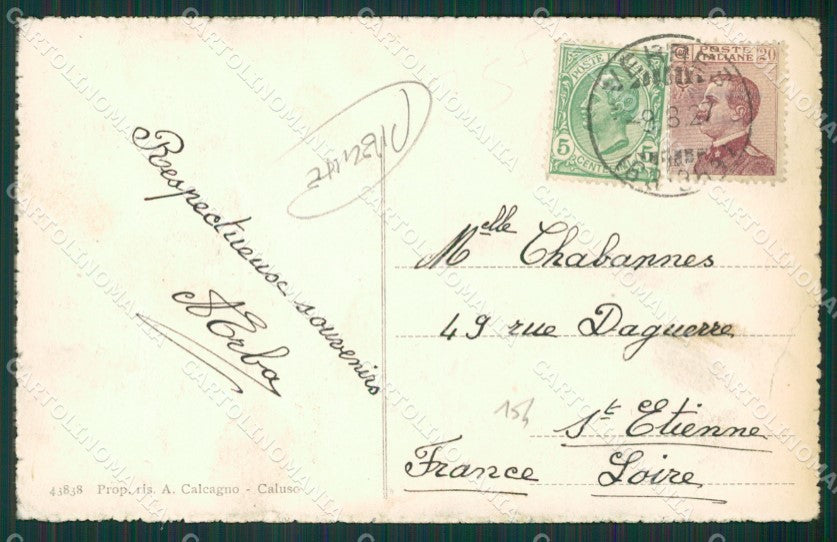 Respectueux souvenirs
AErba
POSTE ITALIANE 20
POSTE
5 5
CENT
Melle Chabannes
49 rue Daguerre
St Etienne
France Loire
15h
43838 Propr. ris. A. Calcagno - Caluso
CARTOLINOMANIA